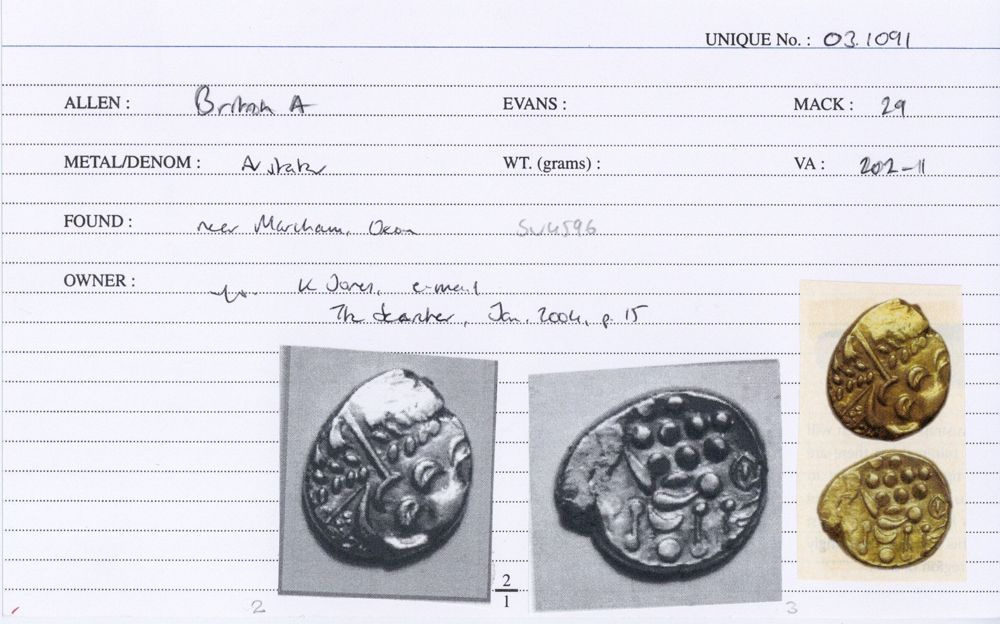 UNIQUE No. : 03.1091
ALLEN : British A EVANS : MACK : 29
METAL/DENOM : AV stater WT. (grams) : VA : 202-11
FOUND : near Marcham, Oxon SU4596
OWNER : K Jones, e-mail
The Searcher, Jan. 2004, p. 15
2
1
2 3